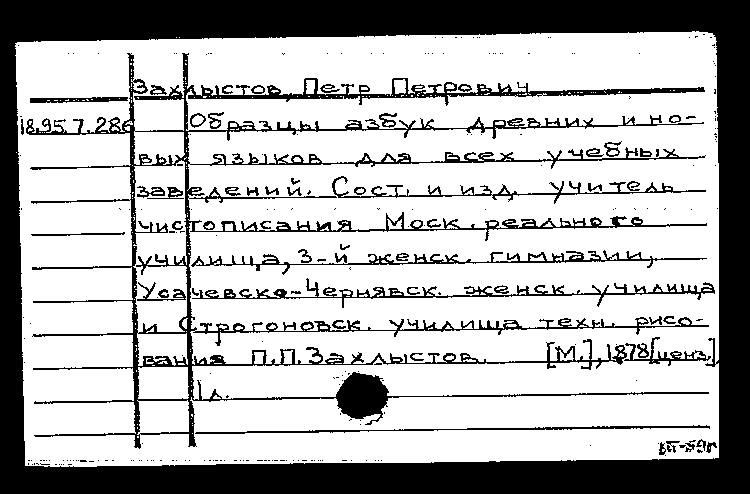 Захлыстов, Петр Петрович
18.95.7.286 Образцы азбук древних и но-
вых языков для всех учебных
заведений. Сост. и изд. учитель
чистописания Моск. реального
училища, 3-й женск. гимназии,
Усачевско-Чернявск. женск. училища
и Строгоновск. училища техн. рисо-
вания П.П.Захлыстов. [М.], 1878 [ценз.].
1 л.